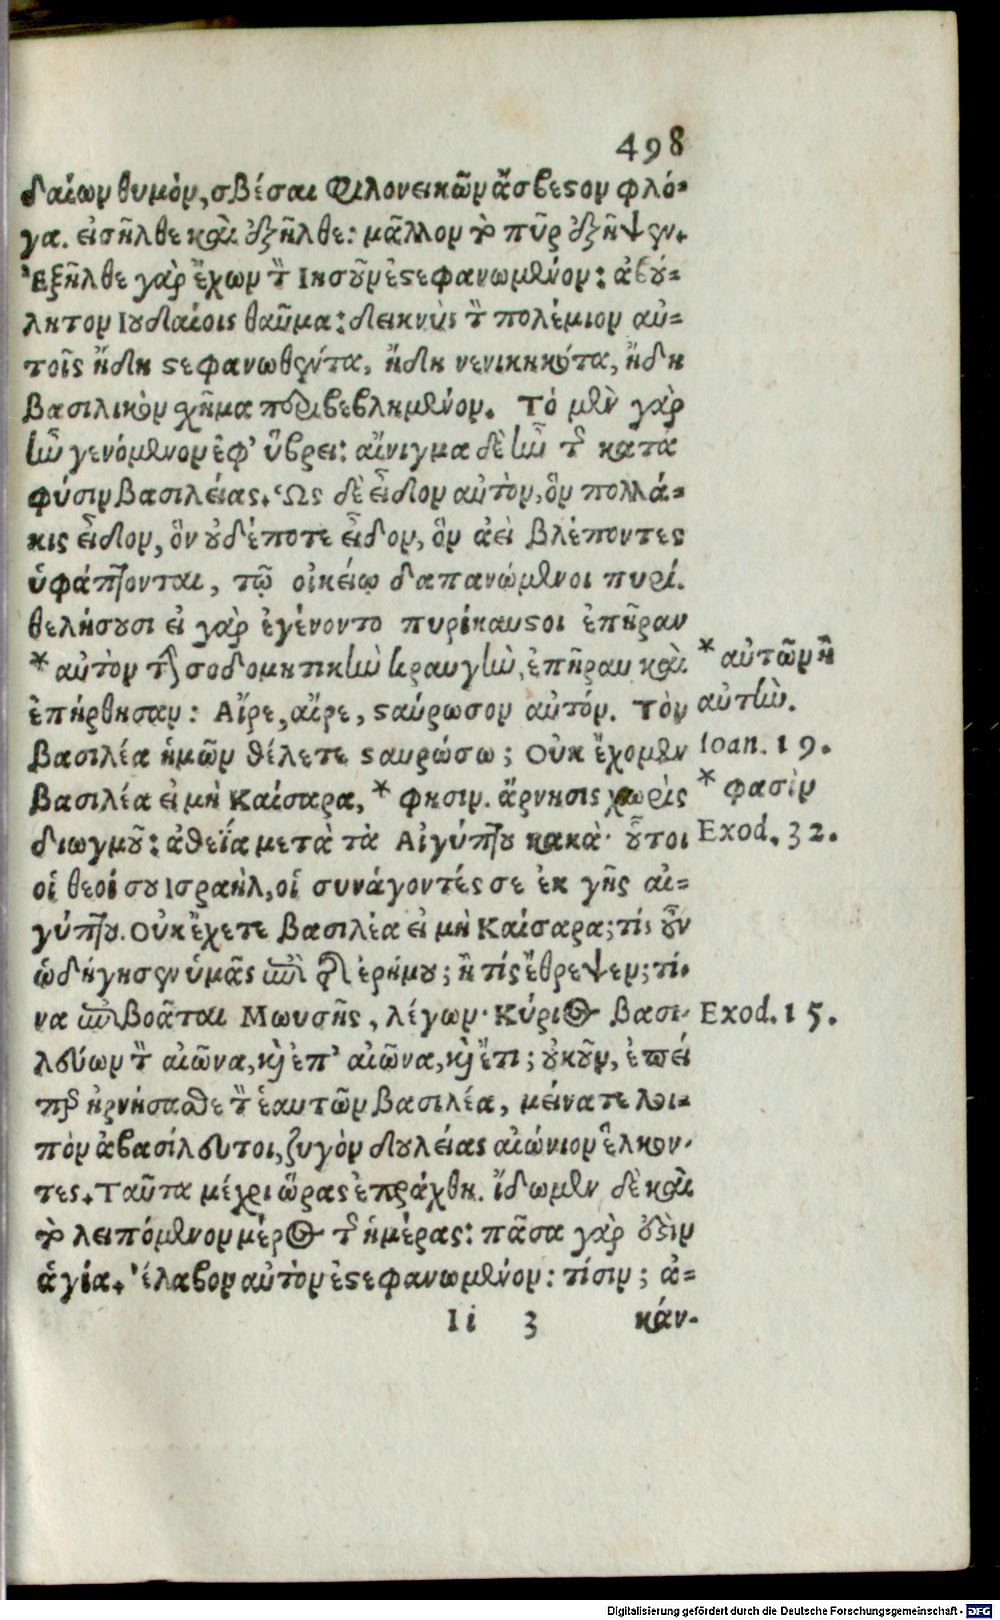 498
δαίων θυμὸν, σβέσαι φιλονεικῶν ἄσβεστον φλό-
γα. εἰσῆλθε καὶ ἐξῆλθε: μᾶλλον τὸ πῦρ ἐξῆψεν.
Ἐξῆλθε γὰρ ἔχων τὸν Ἰησοῦν ἐστεφανωμένον: ἀβού-
λητον Ἰουδαίοις θαῦμα: δεικνὺς τὸν πολέμιον αὐ-
τοῖς ἤδη στεφανωθέντα, ἤδη νενικηκότα, ἤδη
βασιλικὸν σχῆμα περιβεβλημένον. Τὸ μὲν γὰρ
ἦν γενόμενον ἐφ’ ὕβρει: αἴνιγμα δὲ ἦν τῆς κατὰ
φύσιν βασιλείας. Ὡς δὲ εἶδον αὐτὸν, ὃν πολλά-
κις εἶδον, ὃν οὐδέποτε εἶδον, ὃν ἀεὶ βλέποντες
ὑφάπτονται, τῷ οἰκείῳ δαπανώμενοι πυρί.
θελήσουσι εἰ γὰρ ἐγένοντο πυρίκαυστοι ἐπῆραν
* αὐτὸν τὴν σοδομητικὴν κραυγὴν, ἐπῆραν καὶ
* αὐτῶν ἢ
ἐπήρθησαν: Αἶρε, αἶρε, σταύρωσον αὐτόν. Τὸν
αὐτὴν.
βασιλέα ἡμῶν θέλετε σταυρώσω; Οὐκ ἔχομεν
Ioan. 19.
βασιλέα εἰ μὴ Καίσαρα, * φησιν. ἄρνησις χωρὶς
* φασὶν
διωγμοῦ: ἀθεΐα μετὰ τὰ Αἰγύπτου κακὰ· οὗτοι
Exod. 32.
οἱ θεοί σου Ἰσραὴλ, οἱ συνάγοντές σε ἐκ γῆς αἰ-
γύπτου. Οὐκ ἔχετε βασιλέα εἰ μὴ Καίσαρα; τίς οὖν
ὡδήγησεν ὑμᾶς ἐπὶ τῆς ἐρήμου; ἢ τίς ἔθρεψεν; τί-
να ἐπιβοᾶται Μωυσῆς, λέγων· Κύριος βασι-
Exod. 15.
λεύων τὸν αἰῶνα, καὶ ἐπ’ αἰῶνα, καὶ ἔτι; οὐκοῦν, ἐπεί
περ ἠρνήσασθε τὸν ἑαυτῶν βασιλέα, μείνατε λοι-
πὸν ἀβασίλευτοι, ζυγὸν δουλείας αἰώνιον ἕλκον-
τες. Ταῦτα μέχρι ὥρας ἐπράχθη. ἴδωμεν δὲ καὶ
τὸ λειπόμενον μέρος τῆς ἡμέρας: πᾶσα γὰρ ἐστὶν
ἁγία. Ἔλαβον αὐτὸν ἐστεφανωμένον: τίσιν; ἀ-
Ii 3 κάν-
Digitalisierung gefördert durch die Deutsche Forschungsgemeinschaft - DFG